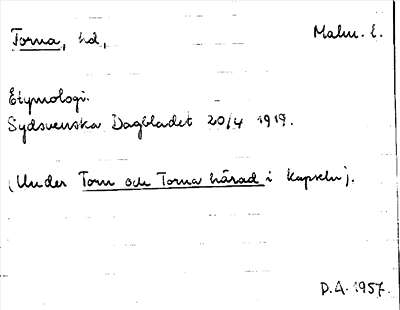 Torna, hd, Malm. l.
Etymologi.
Sydsvenska Dagbladet 20/4 1917.
(Under Torn och Torna härad i kapseln).
D.A. 1957.